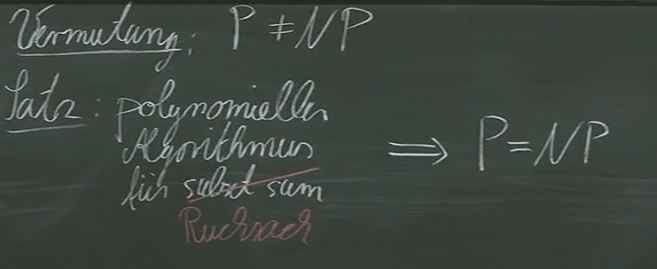 Vermutung: P ≠ NP
Satz: polynomieller
Algorithmus ⟹ P = NP
für subset sum
Rucksack